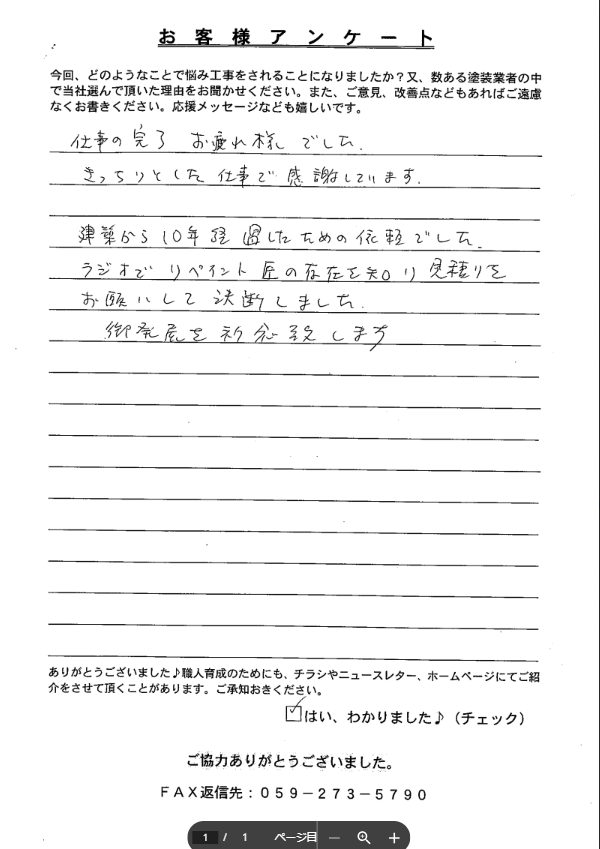 お客様アンケート
今回、どのようなことで悩み工事をされることになりましたか？又、数ある塗装業者の中
で当社選んで頂いた理由をお聞かせください。また、ご意見、改善点などもあればご遠慮
なくお書きください。応援メッセージなども嬉しいです。
仕事の完了 お疲れ様でした.
きっちりとした仕事で感謝しています.
建築から10年経過したための依頼でした.
ラジオでリペイント匠の存在を知り見積りを
お願いして決断しました.
御発展を祈念致します
ありがとうございました♪職人育成のためにも、チラシやニュースレター、ホームページにてご紹
介をさせて頂くことがあります。ご承知おきください。
はい、わかりました♪（チェック）
ご協力ありがとうございました。
ＦＡＸ返信先：０５９－２７３－５７９０
1 / 1 ページ目